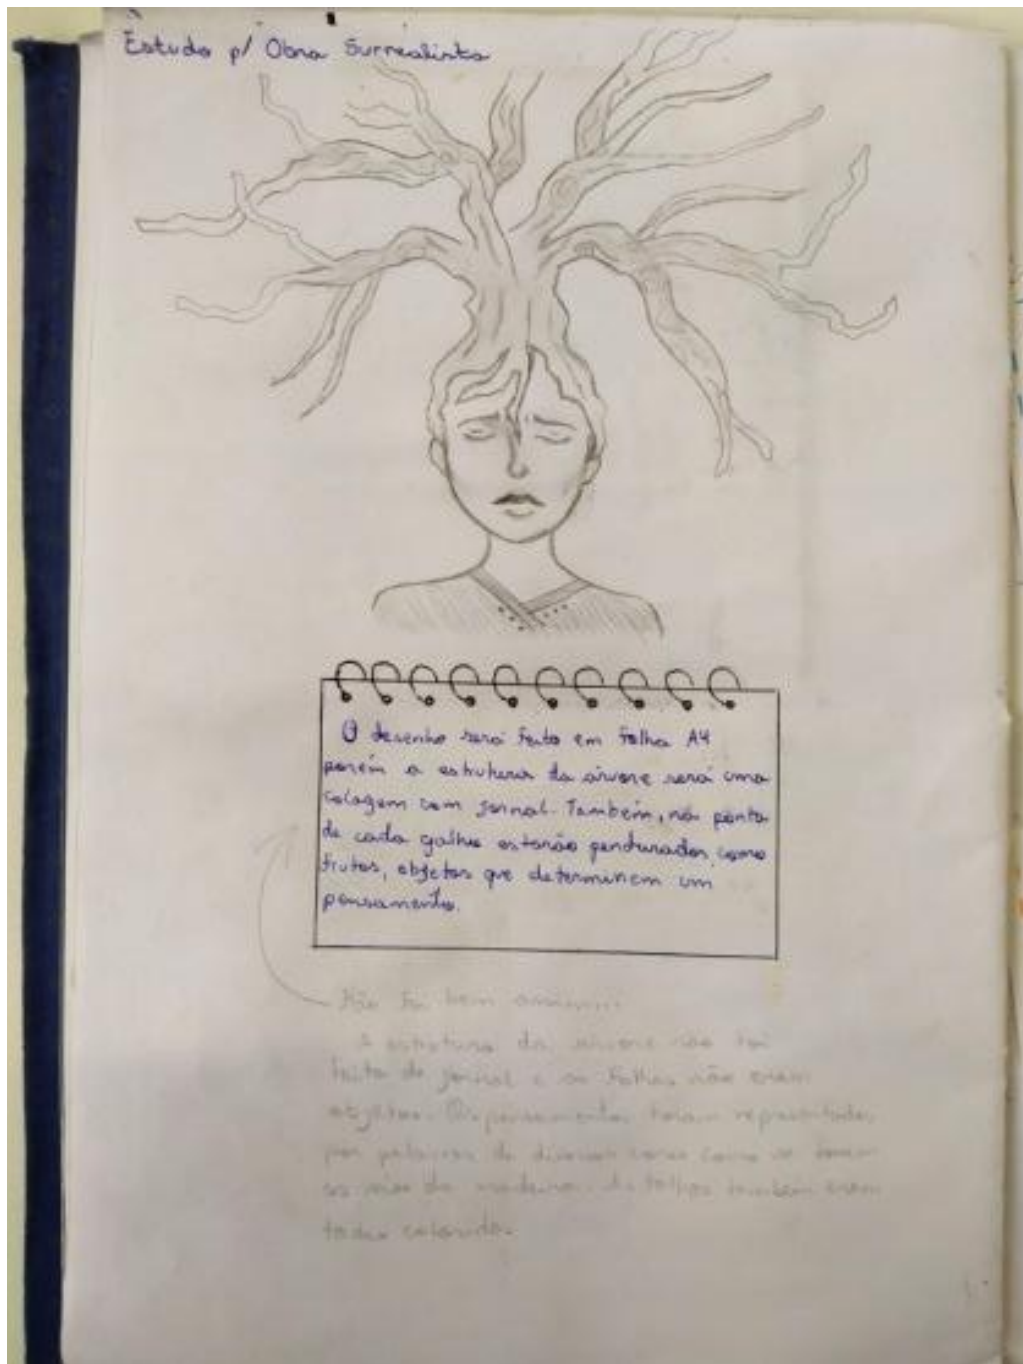 Estudo p/ Obra Surrealista
O desenho será feito em folha A4
porém a estrutura da árvore será uma
colagem com jornal. Também, na ponta
de cada galho estarão pendurados, como
frutos, objetos que determinem um
pensamento.
Não foi bem assim!!!
A estrutura da árvore não foi
feita de jornal e as folhas não eram
objetos. Os pensamentos foram representados
por palavras de diversas cores como se fossem
os veios da madeira. As folhas também eram
todas coloridas.